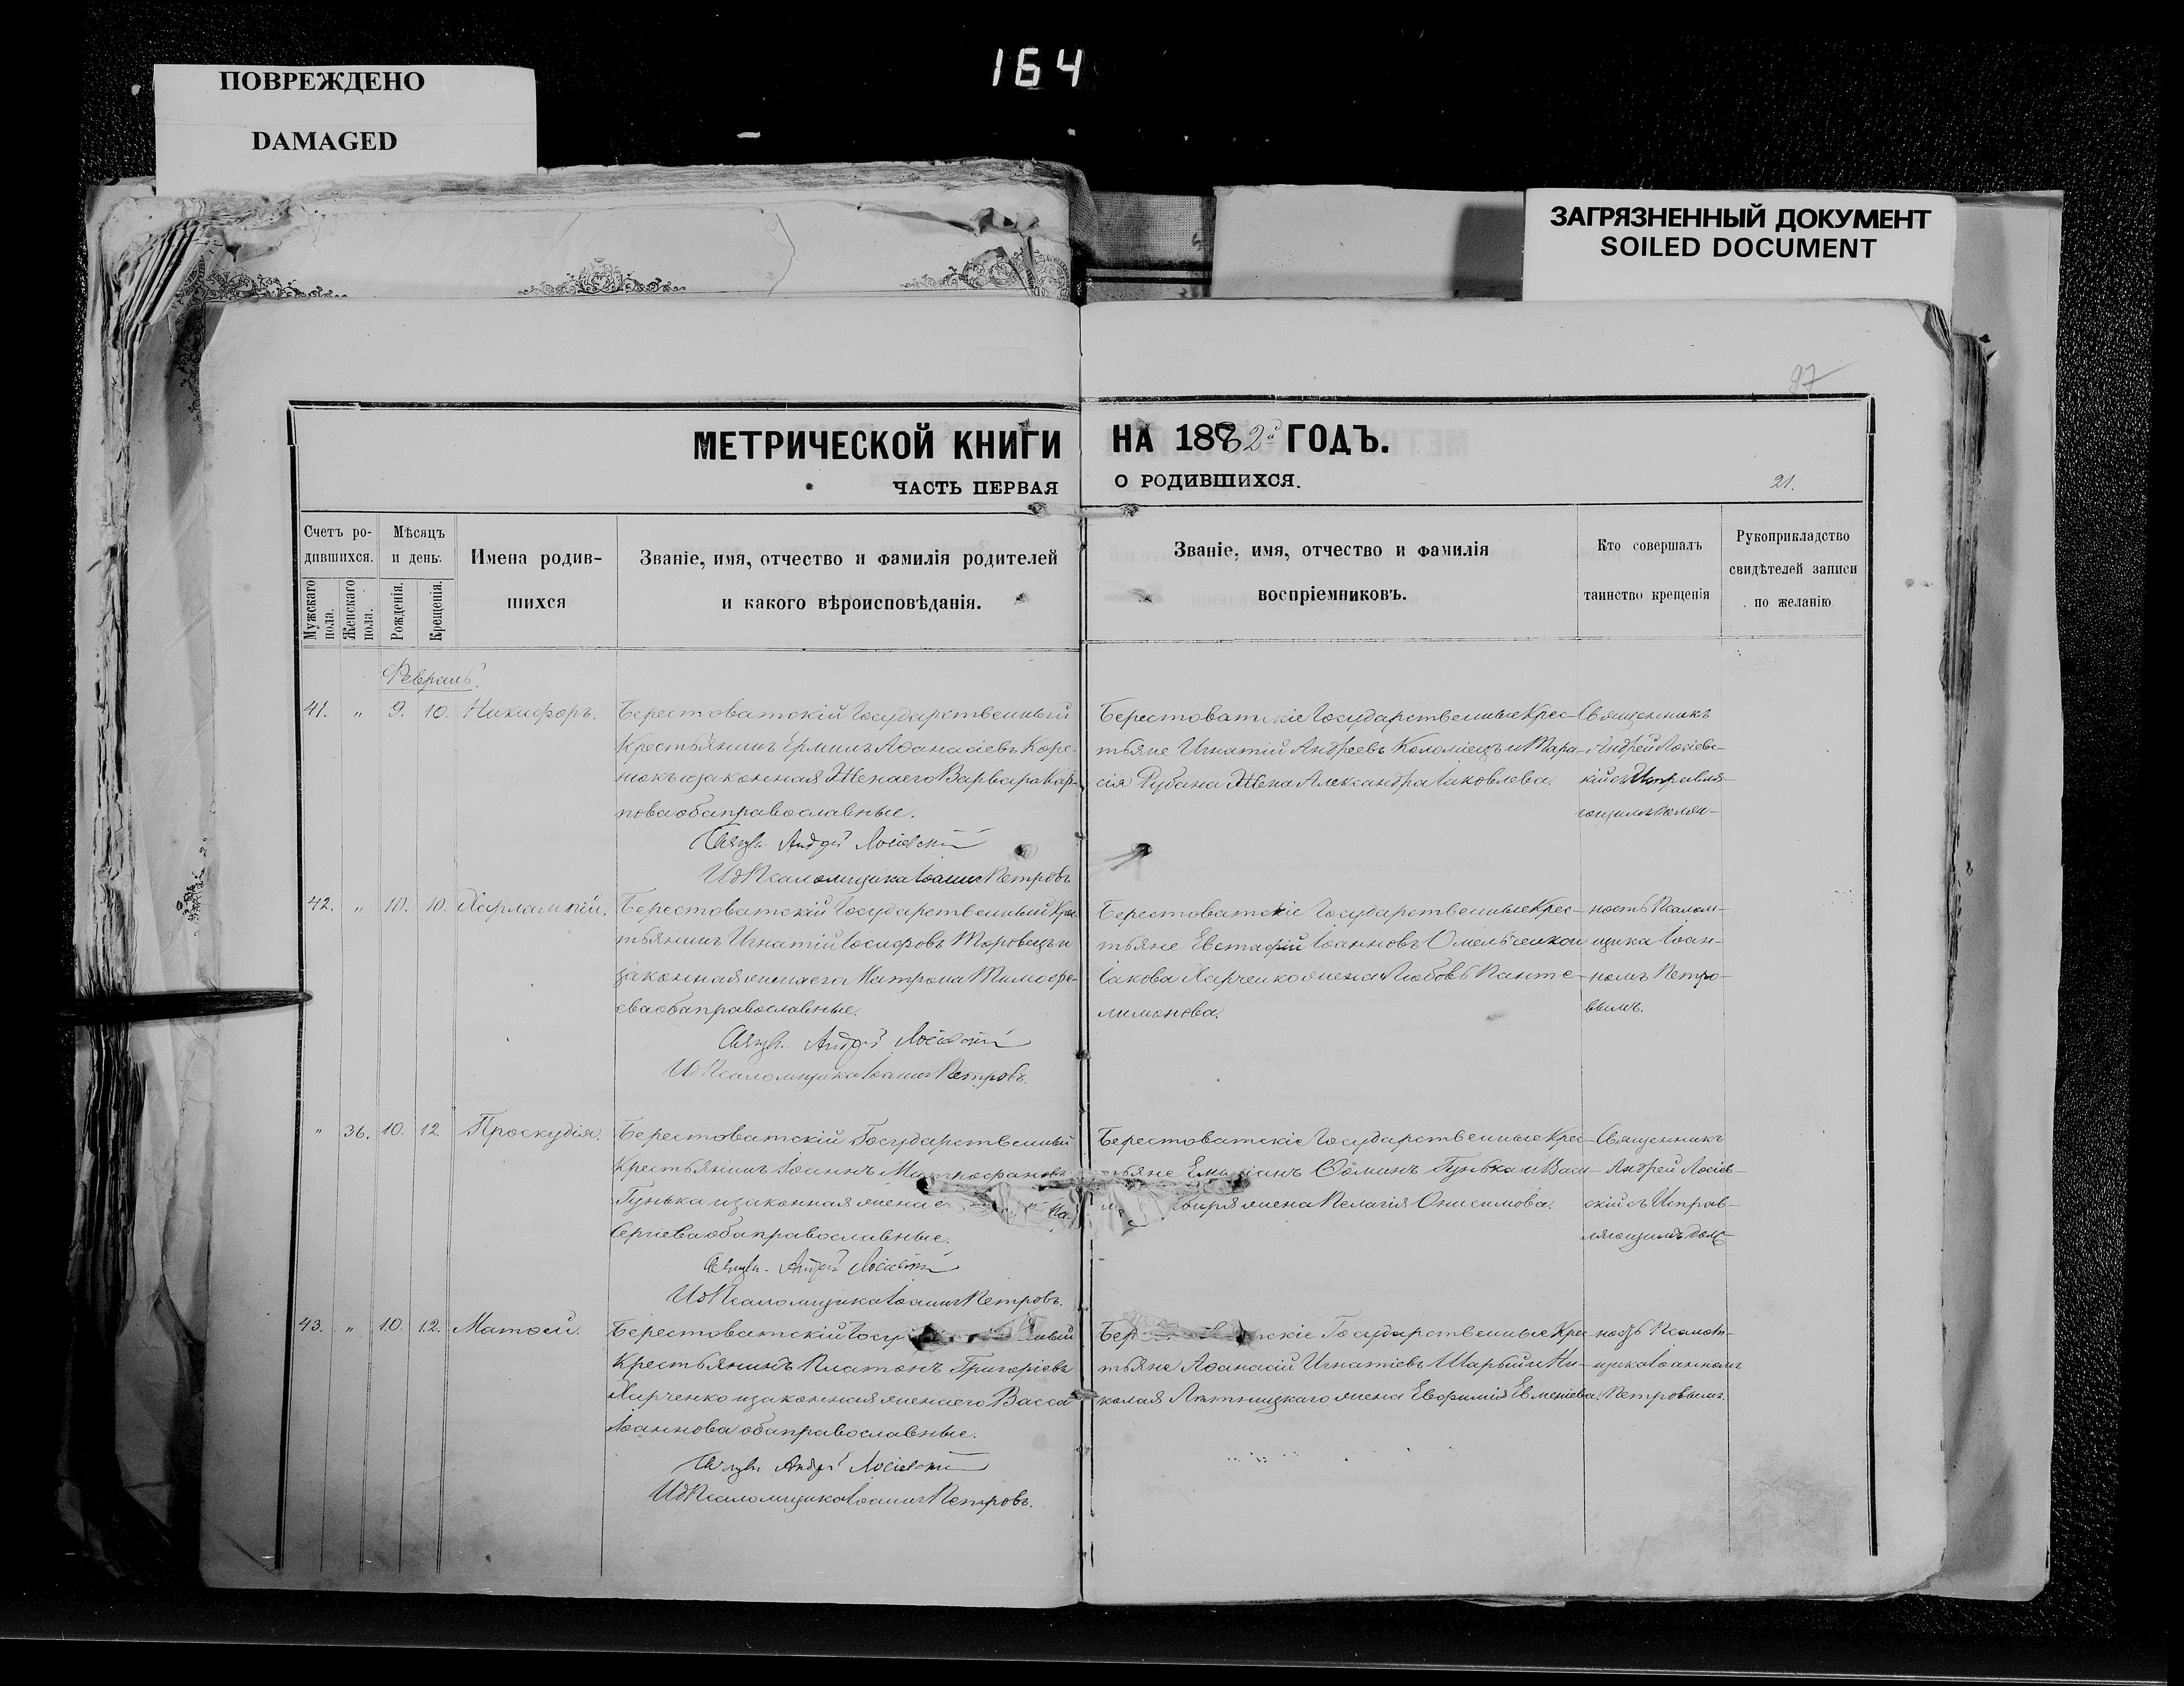 164
ПОВРЕЖДЕНО
DAMAGED
ЗАГРЯЗНЕННЫЙ ДОКУМЕНТ
SOILED DOCUMENT
97
МЕТРИЧЕСКОЙ КНИГИ НА 1882й ГОДЪ.
ЧАСТЬ ПЕРВАЯ О РОДИВШИХСЯ.
21.
Счетъ ро-
дившихся.
Мужскаго пола.
Женскаго пола.
Мѣсяцъ
и день.
Рожденія.
Крещенія.
Имена родив-
шихся
Званіе, имя, отчество и фамилія родителей
и какого вѣроисповѣданія.
Званіе, имя, отчество и фамилія
воспріемниковъ.
Кто совершалъ
таинство крещенія
Рукоприкладство
свидѣтелей записи
по желанію
Февраль.
41. " 9. 10. Никифоръ.
Берестоватскій Государственный
Крестьянинъ Ермилъ Аѳанасіевъ Коре-
нюкъ и законная Жена его Варвара Кар-
пова оба православные.
Священ. Андрей Лосіевскій
И д Псаломщика Іоаннъ Петровъ
Берестоватскіе Государственные Крес-
тьяне Игнатій Андреевъ Коломіецъ и Тара-
сія Рубана Жена Александра Іаковлева.
Священникъ
Андрей Лосіевс-
кій съ Исправля-
ющимъ долж-
42. " 10. 10. Харлампій.
Берестоватскій Государственный Крес-
тьянинъ Игнатій Іосифовъ Торовецъ и
законная жена его Матрона Тимоѳе-
ева оба православные.
Священ. Андрей Лосіевскій
И д Псаломщика Іоаннъ Петровъ.
Берестоватскіе Государственные Крес-
тьяне Евстафій Іоанновъ Омельченко и
Іакова Харченко жена Любовь Панте-
лимонова.
ность Псалом-
щика Іоан-
номъ Петро-
вымъ.
" 36. 10. 12. Проскудія.
Берестоватскій Государственный
Крестьянинъ Іоаннъ Митрофановъ
Гунька и законная жена е
Сергіева оба православные.
Священ. Андрей Лосіевскій
И д Псаломщика Іоаннъ Петровъ.
Берестоватскіе Государственные Крес-
тьяне Емиліанъ Ѳоминъ Гунька и Васи-
жена Пелагія Онисимова.
Священникъ
Андрей Лосіев-
скій съ Исправ-
ляющимъ долж-
43. " 10. 12. Матѳей.
Берестоватскій Госу ный
Крестьянинъ Платонъ Григоріевъ
Харченко и законная жена его Васса
Іоаннова оба православные.
Священ. Андрей Лосіевскій
И д Псаломщика Іоаннъ Петровъ.
Бер тскіе Государственные Крес-
тьяне Аѳанасій Игнатіевъ Шарый и Ни-
колая Лятницкаго жена Евфимія Евменіева.
ность Псалом-
щика Іоанномъ
Петровымъ.